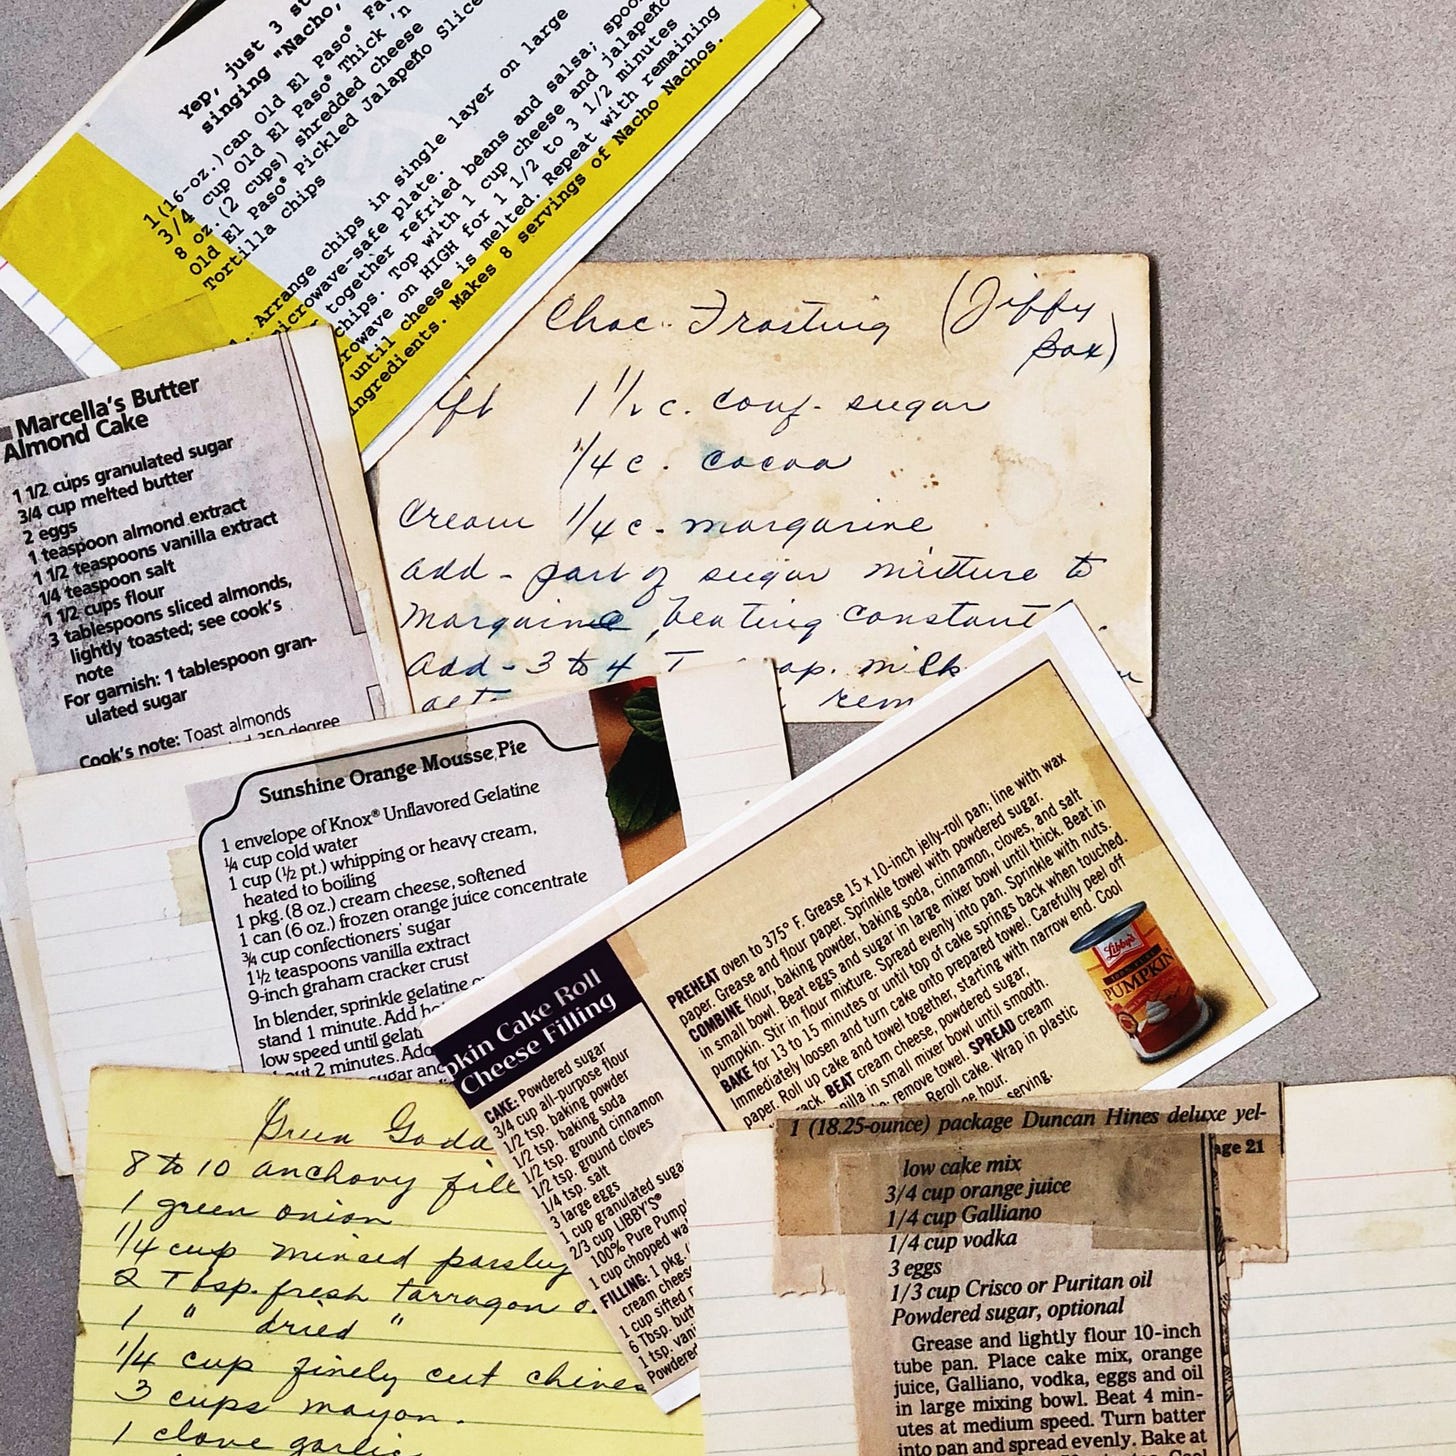 Yep, just 3
singing "Nacho,
1 (16-oz.) can Old El Paso®
3/4 cup Old El Paso® Thick 'n
8 oz. (2 cups) shredded cheese
Old El Paso® Pickled Jalapeño
Tortilla chips
1. Arrange chips in single layer on large
microwave-safe plate.
together refried beans and salsa;
chips. Top with 1 cup cheese and
on HIGH for 1 1/2 to 3 1/2 minutes
until cheese is melted. Repeat with remaining
ingredients. Makes 8 servings of Nacho Nachos.
Choc. Frosting (Jiffy
Box)
1 1/2 c. conf. sugar
1/4 c. cocoa
Cream 1/4 c. margarine
add - part of sugar mixture to
margarine, beating
add - 3 to 4 milk
Marcella's Butter
Almond Cake
1 1/2 cups granulated sugar
3/4 cup melted butter
2 eggs
1 teaspoon almond extract
1 1/2 teaspoons vanilla extract
1/4 teaspoon salt
1 1/2 cups flour
3 tablespoons sliced almonds,
lightly toasted; see cook's
note
For garnish: 1 tablespoon gran-
ulated sugar
Cook's note: Toast almonds
Sunshine Orange Mousse Pie
1 envelope of Knox® Unflavored Gelatine
¼ cup cold water
1 cup (½ pt.) whipping or heavy cream,
heated to boiling
1 pkg. (8 oz.) cream cheese, softened
1 can (6 oz.) frozen orange juice concentrate
¾ cup confectioners' sugar
1½ teaspoons vanilla extract
9-inch graham cracker crust
In blender, sprinkle gelatine
stand 1 minute. Add
low speed until
2 minutes.
sugar
PREHEAT oven to 375° F. Grease 15 x 10-inch jelly-roll pan; line with wax
paper. Grease and flour paper. Sprinkle towel with powdered sugar.
COMBINE flour, baking powder, baking soda, cinnamon, cloves, and salt
in small bowl. Beat eggs and sugar in large mixer bowl until thick. Beat in
pumpkin. Stir in flour mixture. Spread evenly into pan. Sprinkle with nuts.
BAKE for 13 to 15 minutes or until top of cake springs back when touched.
Immediately loosen and turn cake onto prepared towel. Carefully peel off
paper. Roll up cake and towel together, starting with narrow end. Cool
BEAT cream cheese, powdered sugar,
in small mixer bowl until smooth. SPREAD cream
remove towel. Reroll cake. Wrap in plastic
hour.
serving.
Libby's
PUMPKIN
Cake Roll
Cheese Filling
CAKE: Powdered sugar
3/4 cup all-purpose flour
1/2 tsp. baking powder
1/2 tsp. baking soda
1/2 tsp. ground cinnamon
1/2 tsp. ground cloves
1/4 tsp. salt
3 large eggs
1 cup granulated sugar
2/3 cup LIBBY'S®
100% Pure
1 cup chopped
FILLING: 1 pkg.
cream
1 cup sifted
6 Tbsp.
1 tsp.
Powdered
Green
8 to 10 anchovy
1 green onion
1/4 cup minced parsley
2 Tbsp. fresh tarragon
1 " dried "
1/4 cup finely cut chives
3 cups mayon.
1 clove garlic
1 (18.25-ounce) package Duncan Hines deluxe yel-
21
low cake mix
3/4 cup orange juice
1/4 cup Galliano
1/4 cup vodka
3 eggs
1/3 cup Crisco or Puritan oil
Powdered sugar, optional
Grease and lightly flour 10-inch
tube pan. Place cake mix, orange
juice, Galliano, vodka, eggs and oil
in large mixing bowl. Beat 4 min-
utes at medium speed. Turn batter
into pan and spread evenly. Bake at